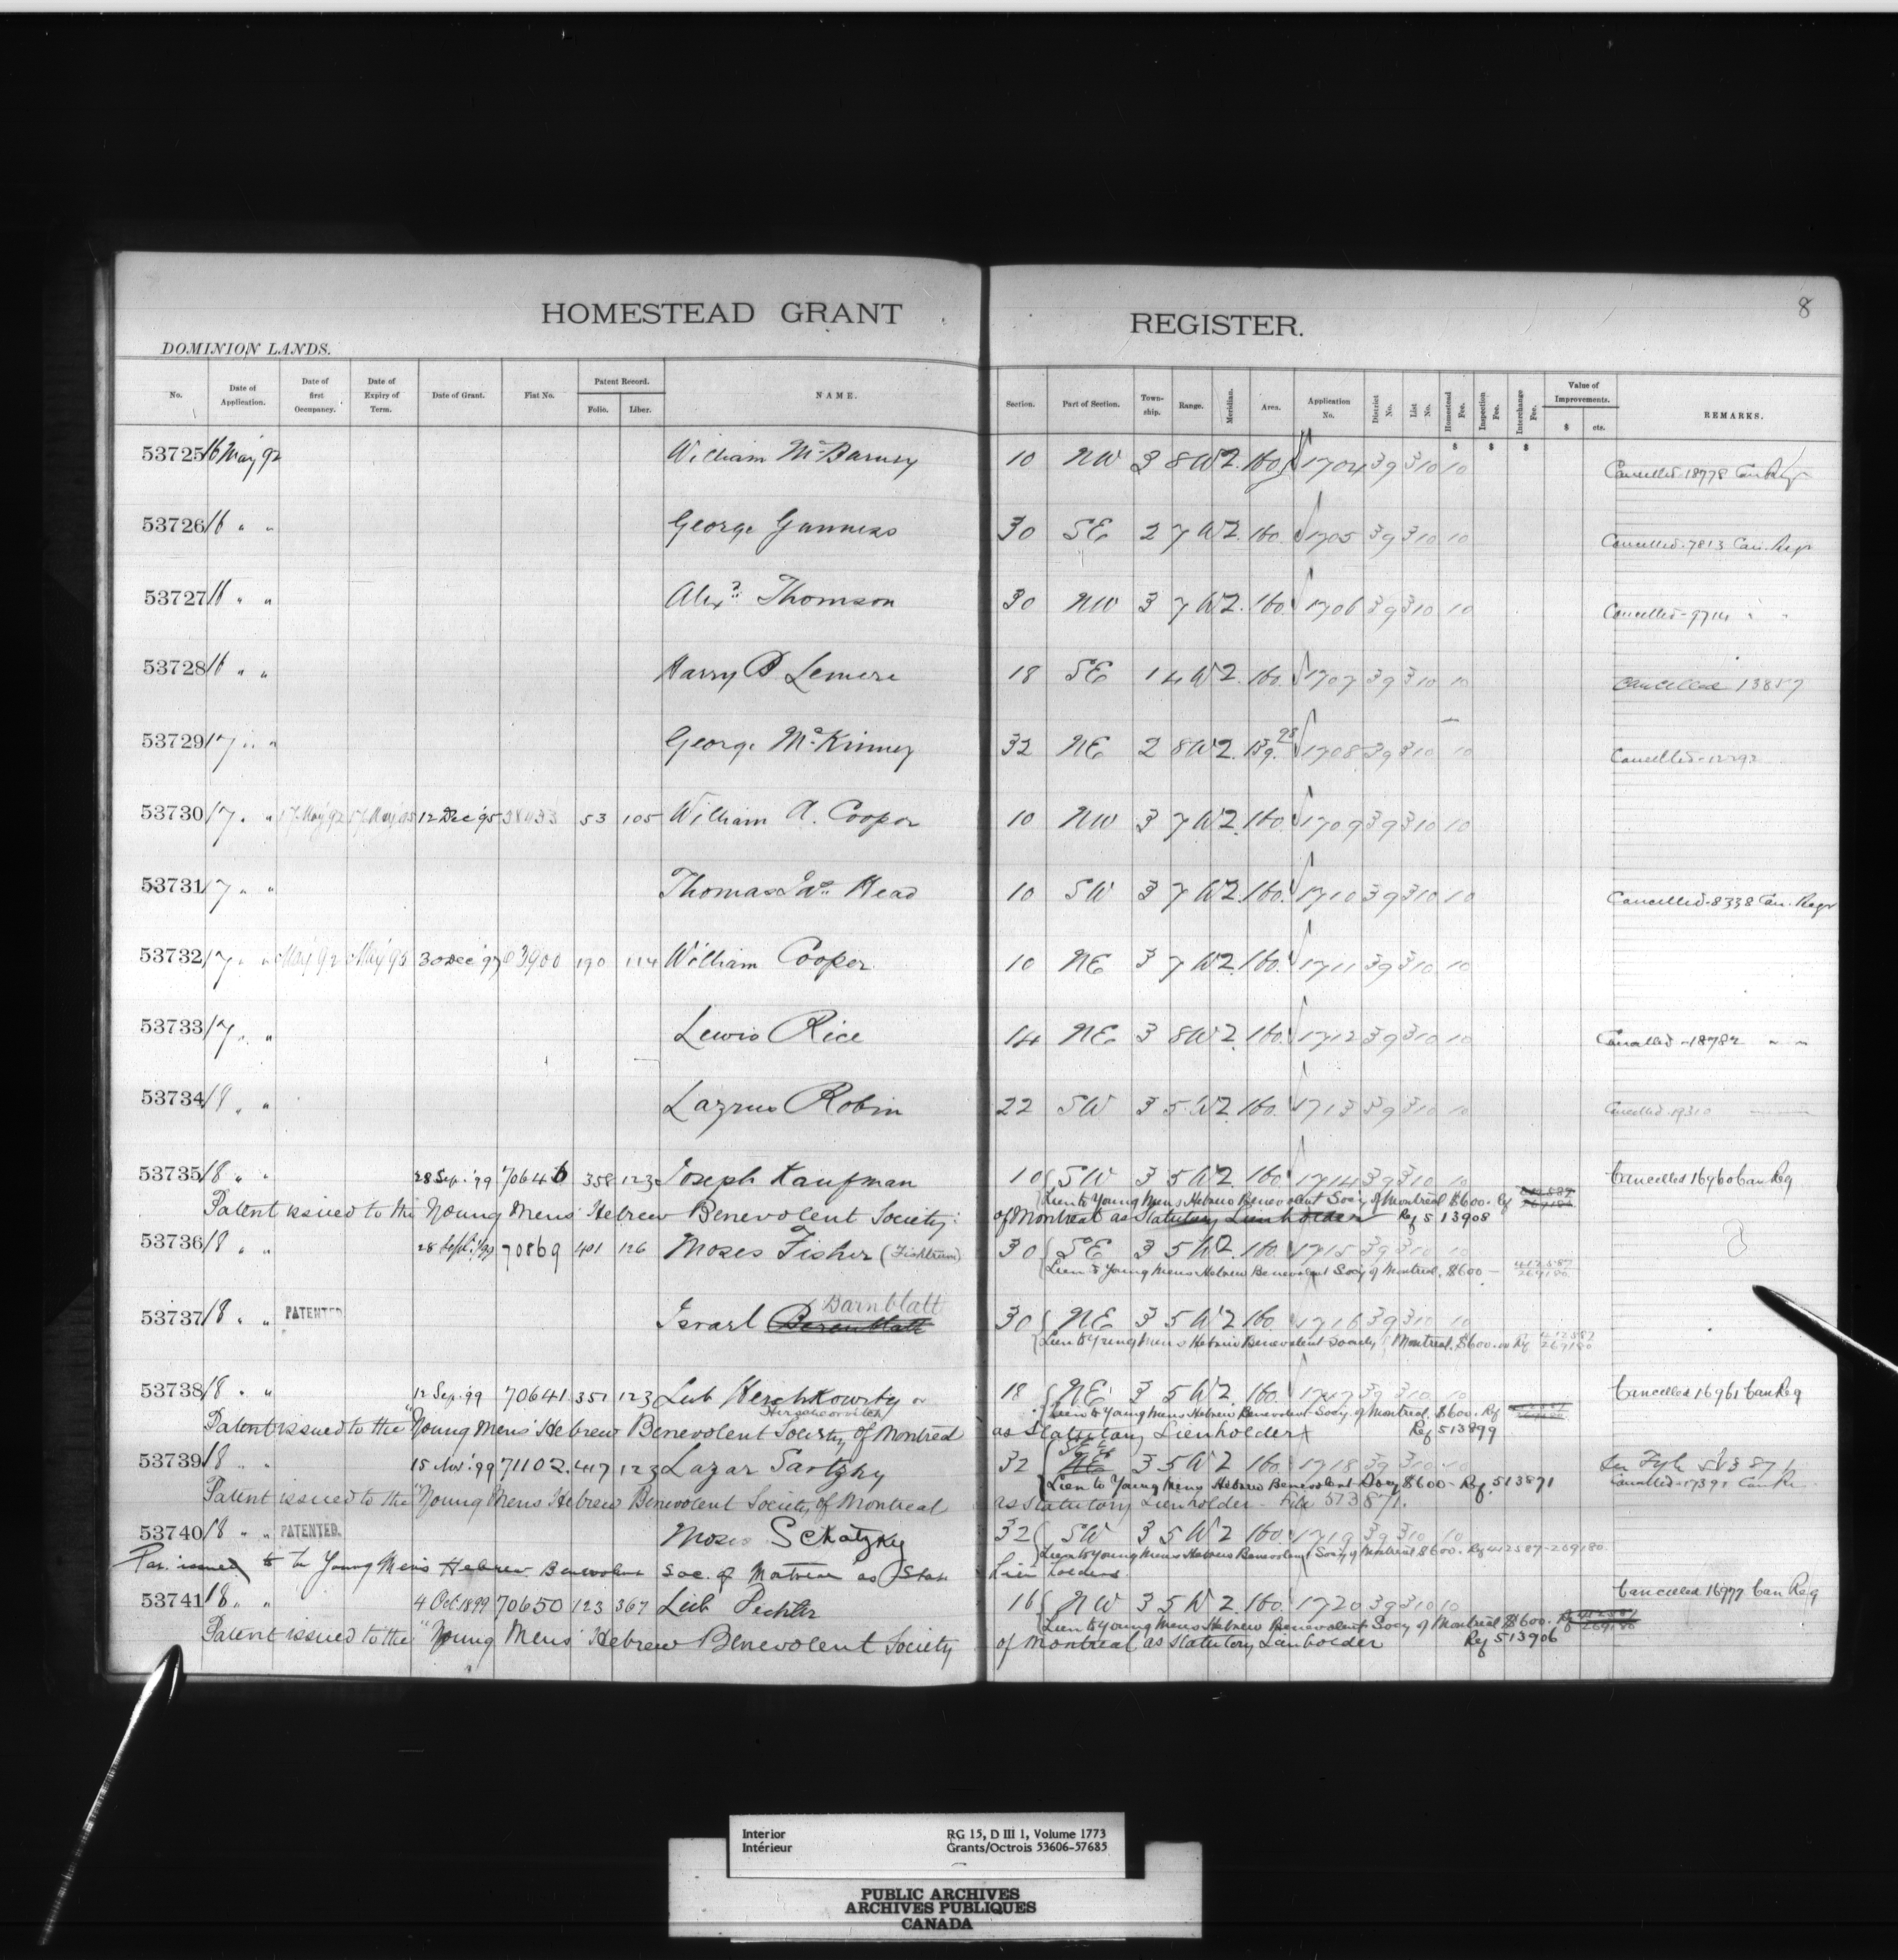 8
HOMESTEAD GRANT REGISTER.
DOMINION LANDS.
No. Date of Application. Date of first Occupancy. Date of Expiry of Term. Date of Grant. Fiat No. Patent Record. Folio. Liber. NAME. Section. Part of Section. Town-ship. Range. Meridian. Area. Application No. District No. List No. Homestead Fee. Inspection Fee. Interchange Fee. Value of Improvements. $ cts. REMARKS.
$ $ $
53725 16 May 92 William McBarney 10 NW 3 8 W2. 160. 1704 39 310 10 Cancelled 18778 Can Regr
53726 16 " " George Gunness 30 SE 2 7 W2. 160. 1705 39 310 10 Cancelled 7813 Can. Regr
53727 16 " " Alexr Thomson 30 NW 3 7 W2. 160. 1706 39 310 10 Cancelled 9714 " "
53728 16 " " Harry B Lemere 18 SE 1 4 W2. 160. 1707 39 310 10 Cancelled 13857
53729 17 " " George McKinney 32 NE 2 8 W2. 139. 1708 39 310 10 Cancelled
53730 17 " " 17 May 92 17 May 95 12 Dec 95 53 105 William A. Cooper 10 NW 3 7 W2. 160. 1709 39 310 10
53731 17 " " Thomas Head 10 SW 3 7 W2. 160. 1710 39 310 10 Cancelled 8338 Can. Regr
53732 17 " " May 92 May 95 30 Dec 97 190 114 William Cooper 10 NE 3 7 W2. 160. 1711 39 310 10
53733 17 " " Lewis Rice 14 NE 3 8 W2. 160. 1712 39 310 10 Cancelled 18782 " "
53734 18 " " Lazrus Robin 22 SW 3 5 W2. 160. 1713 39 310 10 Cancelled 19310
53735 18 " " 28 Sep. '99 70646 358 123 Joseph Kaufman 10 SW 3 5 W2. 160. 1714 39 310 10 Cancelled 16960 Can Reg
Lien to Young Mens Hebrew Benevolent Socy of Montreal $600. Rf
Patent issued to the Young Mens' Hebrew Benevolent Society of Montreal as Statutory Lienholder Ref 513908
53736 18 " " 28 Sept. '99 70869 401 126 Moses Fisher (Fishtrom) 30 SE 3 5 W2. 160. 1715 39 310 10
Lien to Young Mens Hebrew Benevolent Socy of Montreal. $600 — 412587 269180
Barnblatt
53737 18 " " PATENTED Israel 30 NE 3 5 W2 160. 1716 39 310 10
Lien to Young Mens Hebrew Benevolent Society Montreal. $600.00 Rf 412587 269180
53738 18 " " 12 Sep. '99 70641 351 123 Leib Herschkowitz or 18 NE 3 5 W2. 160. 1717 39 310 10 Cancelled 16961 Can Reg
Herschcovitch
Lien to Young Mens Hebrew Benevolent Socy of Montreal. $600. Rf
Patent issued to the "Young Mens' Hebrew Benevolent Society of Montreal as Statutory Lienholder Ref 513899
53739 18 " " 15 Nov. '99 71102 417 123 Lazar Sartzky 32 NE 3 5 W2 160. 1718 39 310 10 See Fyle 513871
Lien to Young Mens Hebrew Benevolent Socy $600 - Rf. 513871 Cancelled 17391 Can Re
Patent issued to the "Young Mens Hebrew Benevolent Society of Montreal as Statutory Lienholder - File 513871.
53740 18 " " PATENTED. Moses Schatzky 32 SW 3 5 W2 160. 1719 39 310 10
Lien to Young Mens Hebrew Benevolent Socy of Montreal $600. Rf 412587-269180
Pat. issued to the Young Men's Hebrew Benevolent Soc. of Montreal as Stat. Lien holders.
53741 18 " " 4 Oct. 1899 70650 123 367 Leib Pechter 16 NW 3 5 W2. 160. 1720 39 310 10 Cancelled 16977 Can Reg
Lien to Young Mens Hebrew Benevolent Socy of Montreal $600. Rf
Patent issued to the "Young Mens' Hebrew Benevolent Society of Montreal as Statutory Lienholder Ref 513906
Interior RG 15, D III 1, Volume 1773
Intérieur Grants/Octrois 53606-57685
PUBLIC ARCHIVES
ARCHIVES PUBLIQUES
CANADA